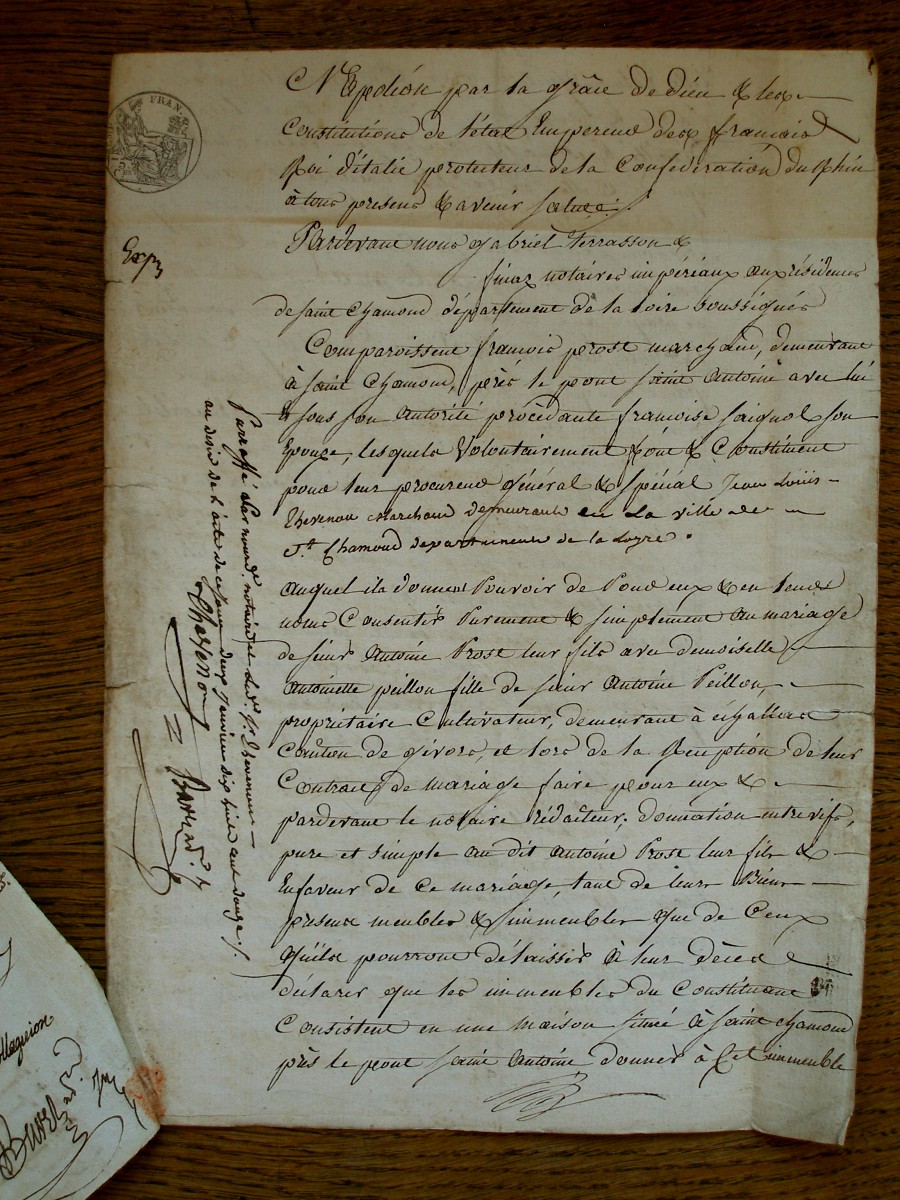 FRAN
Napoléon par la grâce de dieu & les
Constitutions de l'état Empereur des francais
Roi d'italie protecteur de la Confédération du Rhin
à tous presens & avenir salut.
Exp
Pardevant nous gabriel terrasson &
finaz notaires impériaux aux résidences
de saint chamond département de la loire soussignés
Comparoissent francois prost marchand, demeurant
à saint Chamond, près le pont saint antoine avec lui
& sous son autorité procèdante francoise saignol son
Epouze, lesquels volontairement font & Constituent
pour leur procureur général & spécial Jean Louiis
thevenon marchand demeurant en La ville de
St Chamond departement de la Loyre.
auquel ils donnent Pouvoir de Pour eux & en leurs
noms Consentir Purement & simplement au mariage
de sieur antoine Prost leur fils avec demoiselle
antoinette peillon fille de sieur antoine Peillon,
propriétaire Cultivateur, demeurant à
Canton de givors, et lors de la Réception de leur
Contrat de mariage faire pour eux &
pardevant le notaire rédacteur, donnation entrevifs,
pure et simple au dit antoine Prost leur fils &
Enfaveur de ce mariage, tant de leurs Biens
présens meubles & immeubles que de Ceux
qu'ils pourront délaisser à leur décès
déclarer que les immeubles du Constituant
Consistent en une maison située à saint chamond
près le pont saint antoine donner à Cet immeuble
paraffé par nous notaires
au desir de l'acte de ce jour janvier dix huit cent douze
Thevenon